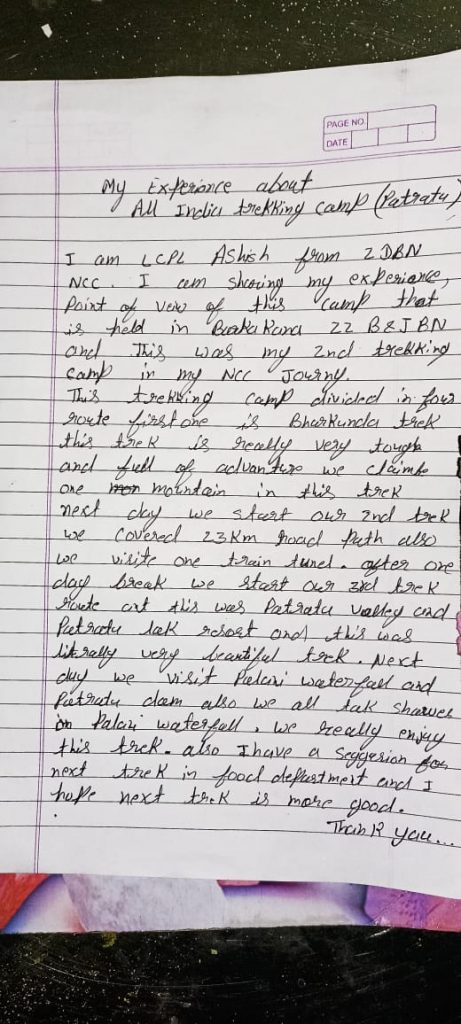 PAGE NO.
DATE
My Experience about
All India trekking camp (Patratu)
I am LCPL Ashish from 2 DBN
NCC. I am sharing my experiance,
Point of veiw of this camp that
is held in Barkakana 22 B&J BN
and This was my 2nd trekking
camp in my NCC Journy.
This trekking camp divided in four
route first one is Bharkunda trek
this trek is really very tough
and full of advanture we claimb
one mountain in this trek
next day we start our 2nd trek
we covered 23 Km road Path also
we visite one train tunel. after one
day break we start our 3rd trek
route at this was Patratu valley and
Patratu lak resort and this was
litrally very beautiful trek. Next
day we visit Palani waterfall and
Patratu dam also we all tak shawer
in Palani waterfall. We really enjoy
this trek. also I have a seggesion for
next trek in food depastment and I
hope next trek is more good.
Thank you...